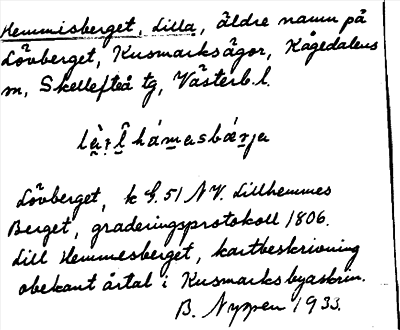 Hemmisberget, Lilla, äldre namn på
Lövberget, Kusmarksågor, Kågedalens
sn, Skellefteå tg, Västerb. l.
Lövberget, k G. 51 NV. Lillhemmes
Berget, graderingsprotokoll 1806.
Lill Hemmesberget, kartbeskrivning
obekant årtal i Kusmarks byaskrin.
B. Nyppen 1933.